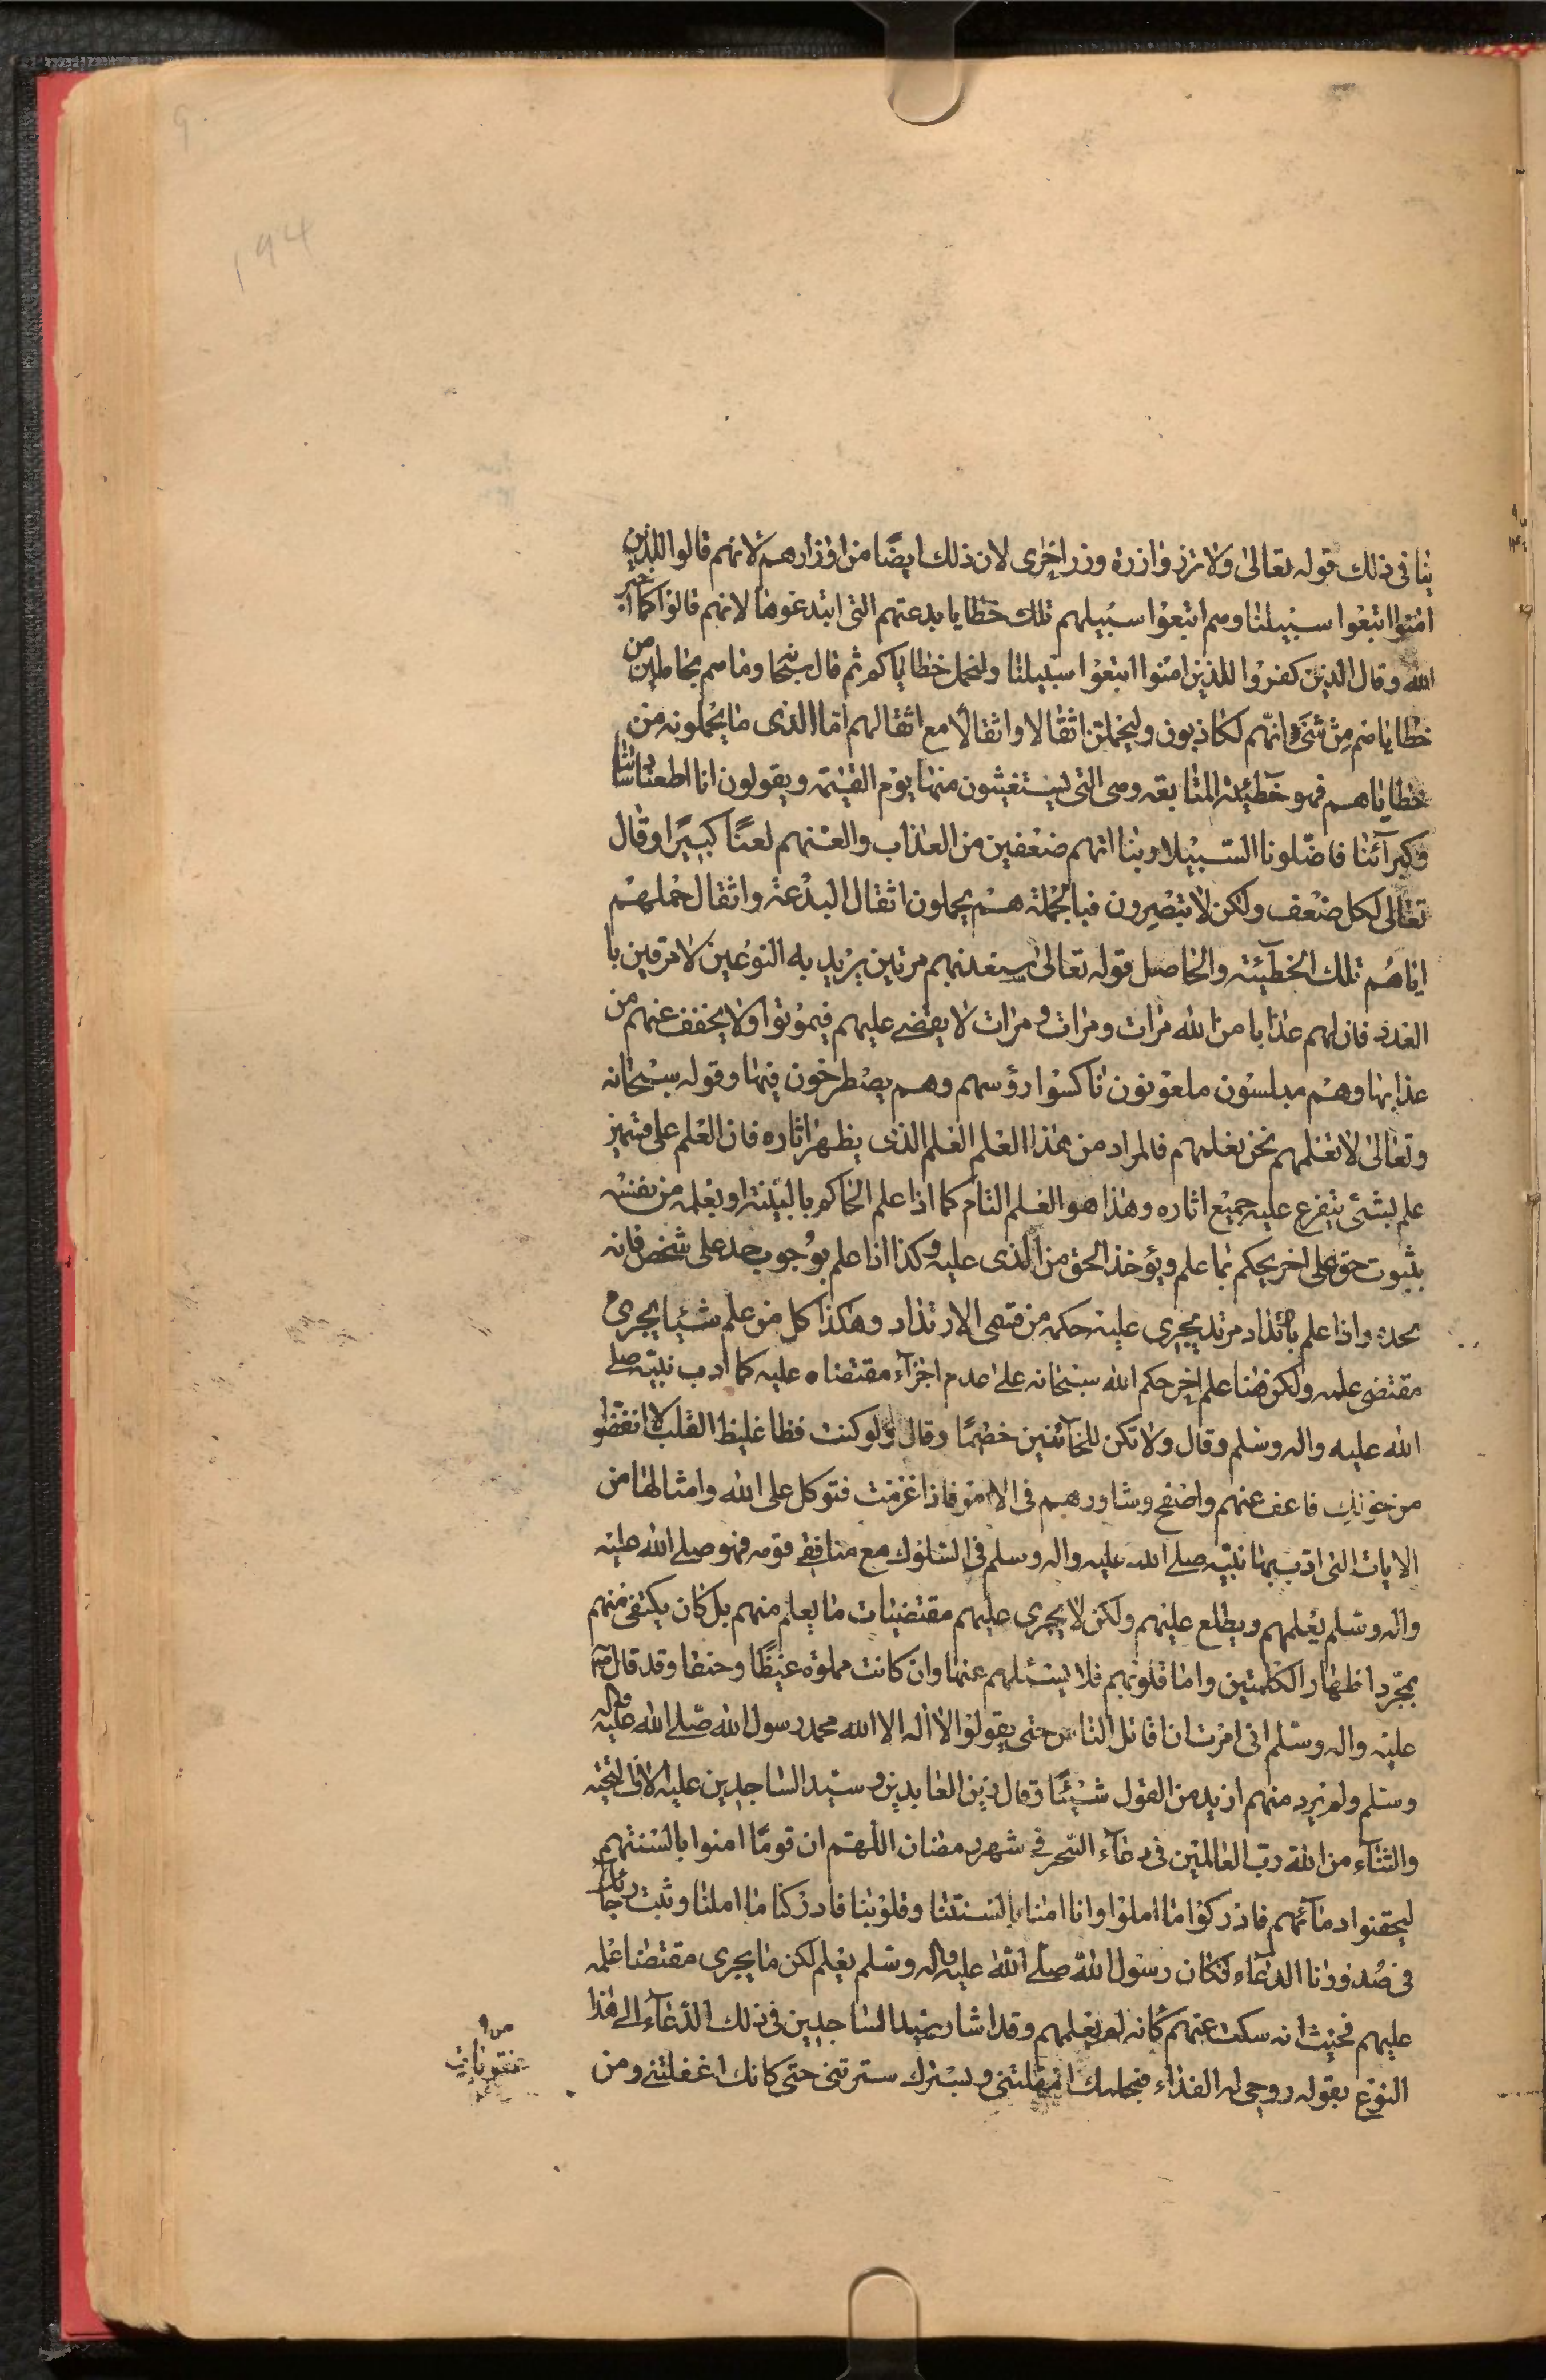 194
ينافى ذلك قوله تعالى ولا تزر وازرة وزر اخرى لان ذلك ايضًا من اوزارهم لانهم قالوا للذين
امنوا اتبعوا سبيلنا وهم اتبعوا سبيلهم تلك خطايا بدعتهم التى ابتدعوها لانهم قالوا كما اخبر
الله وقال الذين كفروا للذين امنوا اتبعوا سبيلنا ولنحمل خطاياكم ثم قال سبحانه وما هم بحاملين من
خطاياهم من شئ انهم لكاذبون وليحملن اثقالا واثقالًا مع اثقالهم اما الذى ما يحملونه من
خطاياهم فهو خطيئة المتابعة وهى التى يستغيثون منها يوم القيمة ويقولون انا اطعنا ساداتنا
وكبرآئنا فاضلونا السبيلا ربنا اتهم ضعفين من العذاب والعنهم لعنًا كبيرًا وقال
تعالى لكل ضعف ولكن لا تبصرون فبالجملة هم يحملون اثقال البدعة واثقال حملهم
اياهم تلك الخطيئة والحاصل قوله تعالى سنعذبهم مرتين يريد به النوعين لا مرتين با
العدد فان لهم عذابا من الله مرات ومرات ومرات لا يقضى عليهم فيموتوا ولا يخفف عنهم من
عذابها وهم مبلسون ملعونون ناكسوا رؤسهم وهم يصطرخون فيها وقوله سبحانه
وتعالى لا تعلمهم نحن نعلمهم فالمراد من هذا العلم العلم الذى يظهر اثاره فان العلم على قسمين
علم بشئ يتفرع عليه جميع اثاره وهذا هو العلم التام كما اذا علم الحاكم بالبينة او بعلمه من نفسه
بثبوت حق على اخر يحكم بما علم ويؤخذ الحق من الذى عليه وكذا اذا علم بوجوب حد على شخص فانه
يحده واذا علم بارتداد مرتد يجرى عليه حكمه من قتله الارتداد وهكذا كل من علم شيئا يجرى
مقتضى علمه ولكن هنا علم اخر حكم الله سبحانه على عدم اجرآء مقتضاه عليه كما ادب نبيه صلى
الله عليه واله وسلم وقال ولا تكن للخآئنين خصيمًا وقال ولو كنت فظا غليظ القلب لانفضوا
من حولك فاعف عنهم واصفح وشاورهم فى الامر فاذا عزمت فتوكل على الله وامثالها من
الايات التى ادب بها نبيه صلى الله عليه واله وسلم فى السلوك مع منافقى قومه فهو صلى الله عليه
واله وسلم يعلمهم ويطلع عليهم ولكن لا يجرى عليهم مقتضيات ما يعلم منهم بل كان يكتفى منهم
بمجرد اظهار الكلمتين واما قلوبهم فلا يسئلهم عنها وان كانت مملوة غيظًا وحنقا وقد قال صلى الله
عليه واله وسلم انى امرت ان اقاتل الناس حتى يقولوا لا اله الا الله محمد رسول الله صلى الله عليه واله
وسلم ولم يرد منهم ازيد من القول شيئًا وقال زين العابدين وسيد الساجدين عليه الاف التحية
والثنآء من الله رب العالمين فى دعآء السحر فى شهر رمضان اللهم ان قومًا امنوا بالسنتهم
ليحقنوا دمآئهم فادركوا ما املوا وانا امنا بالسنتنا وقلوبنا فادركنا ما املنا وثبت رجآئك
فى صدورنا الدعآء فكان رسول الله صلى الله عليه واله وسلم يعلم لكن ما يجرى مقتضا علمه
عليهم فحيث انه سكت عنهم كانه لم يعلمهم وقد اشار سيد الساجدين فى ذلك الدعآء الى هذا
النوع بقوله روحى له الفداء فبحلمك امهلتنى وبسترك سترتنى حتى كانك اغفلتنى ومن